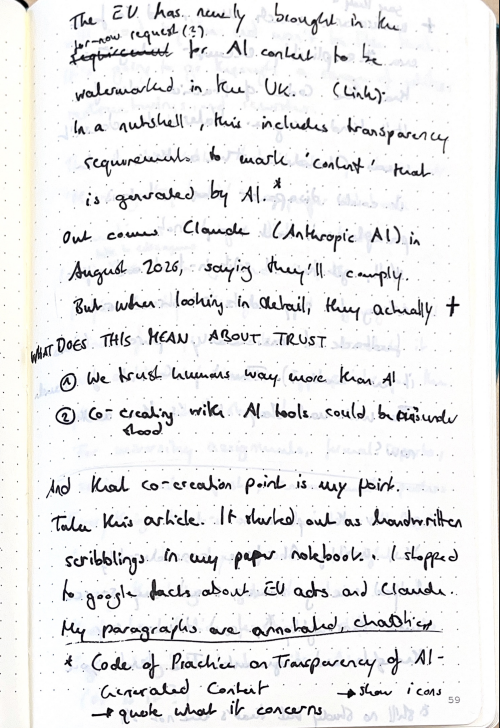 The EU has newly brought in the
for-now request (?)
requirement for AI content to be
watermarked in the UK. (Link).
In a nutshell, this includes transparency
requirements to mark 'content' that
is generated by AI.*
Out comes Claude (Anthropic AI) in
August 2026, saying they'll comply.
But when looking in detail, they actually +
WHAT DOES THIS MEAN ABOUT TRUST
① We trust humans way more than AI
② Co-creating with AI tools could be misunder
stood
And that co-creation point is my point.
Take this article. It started out as handwritten
scribblings in my paper notebook. I stopped
to google facts about EU acts and Claude.
My paragraphs are annotated, chaotic,
* Code of Practice on Transparency of AI-
Generated Content → show icons
→ quote what it concerns
59